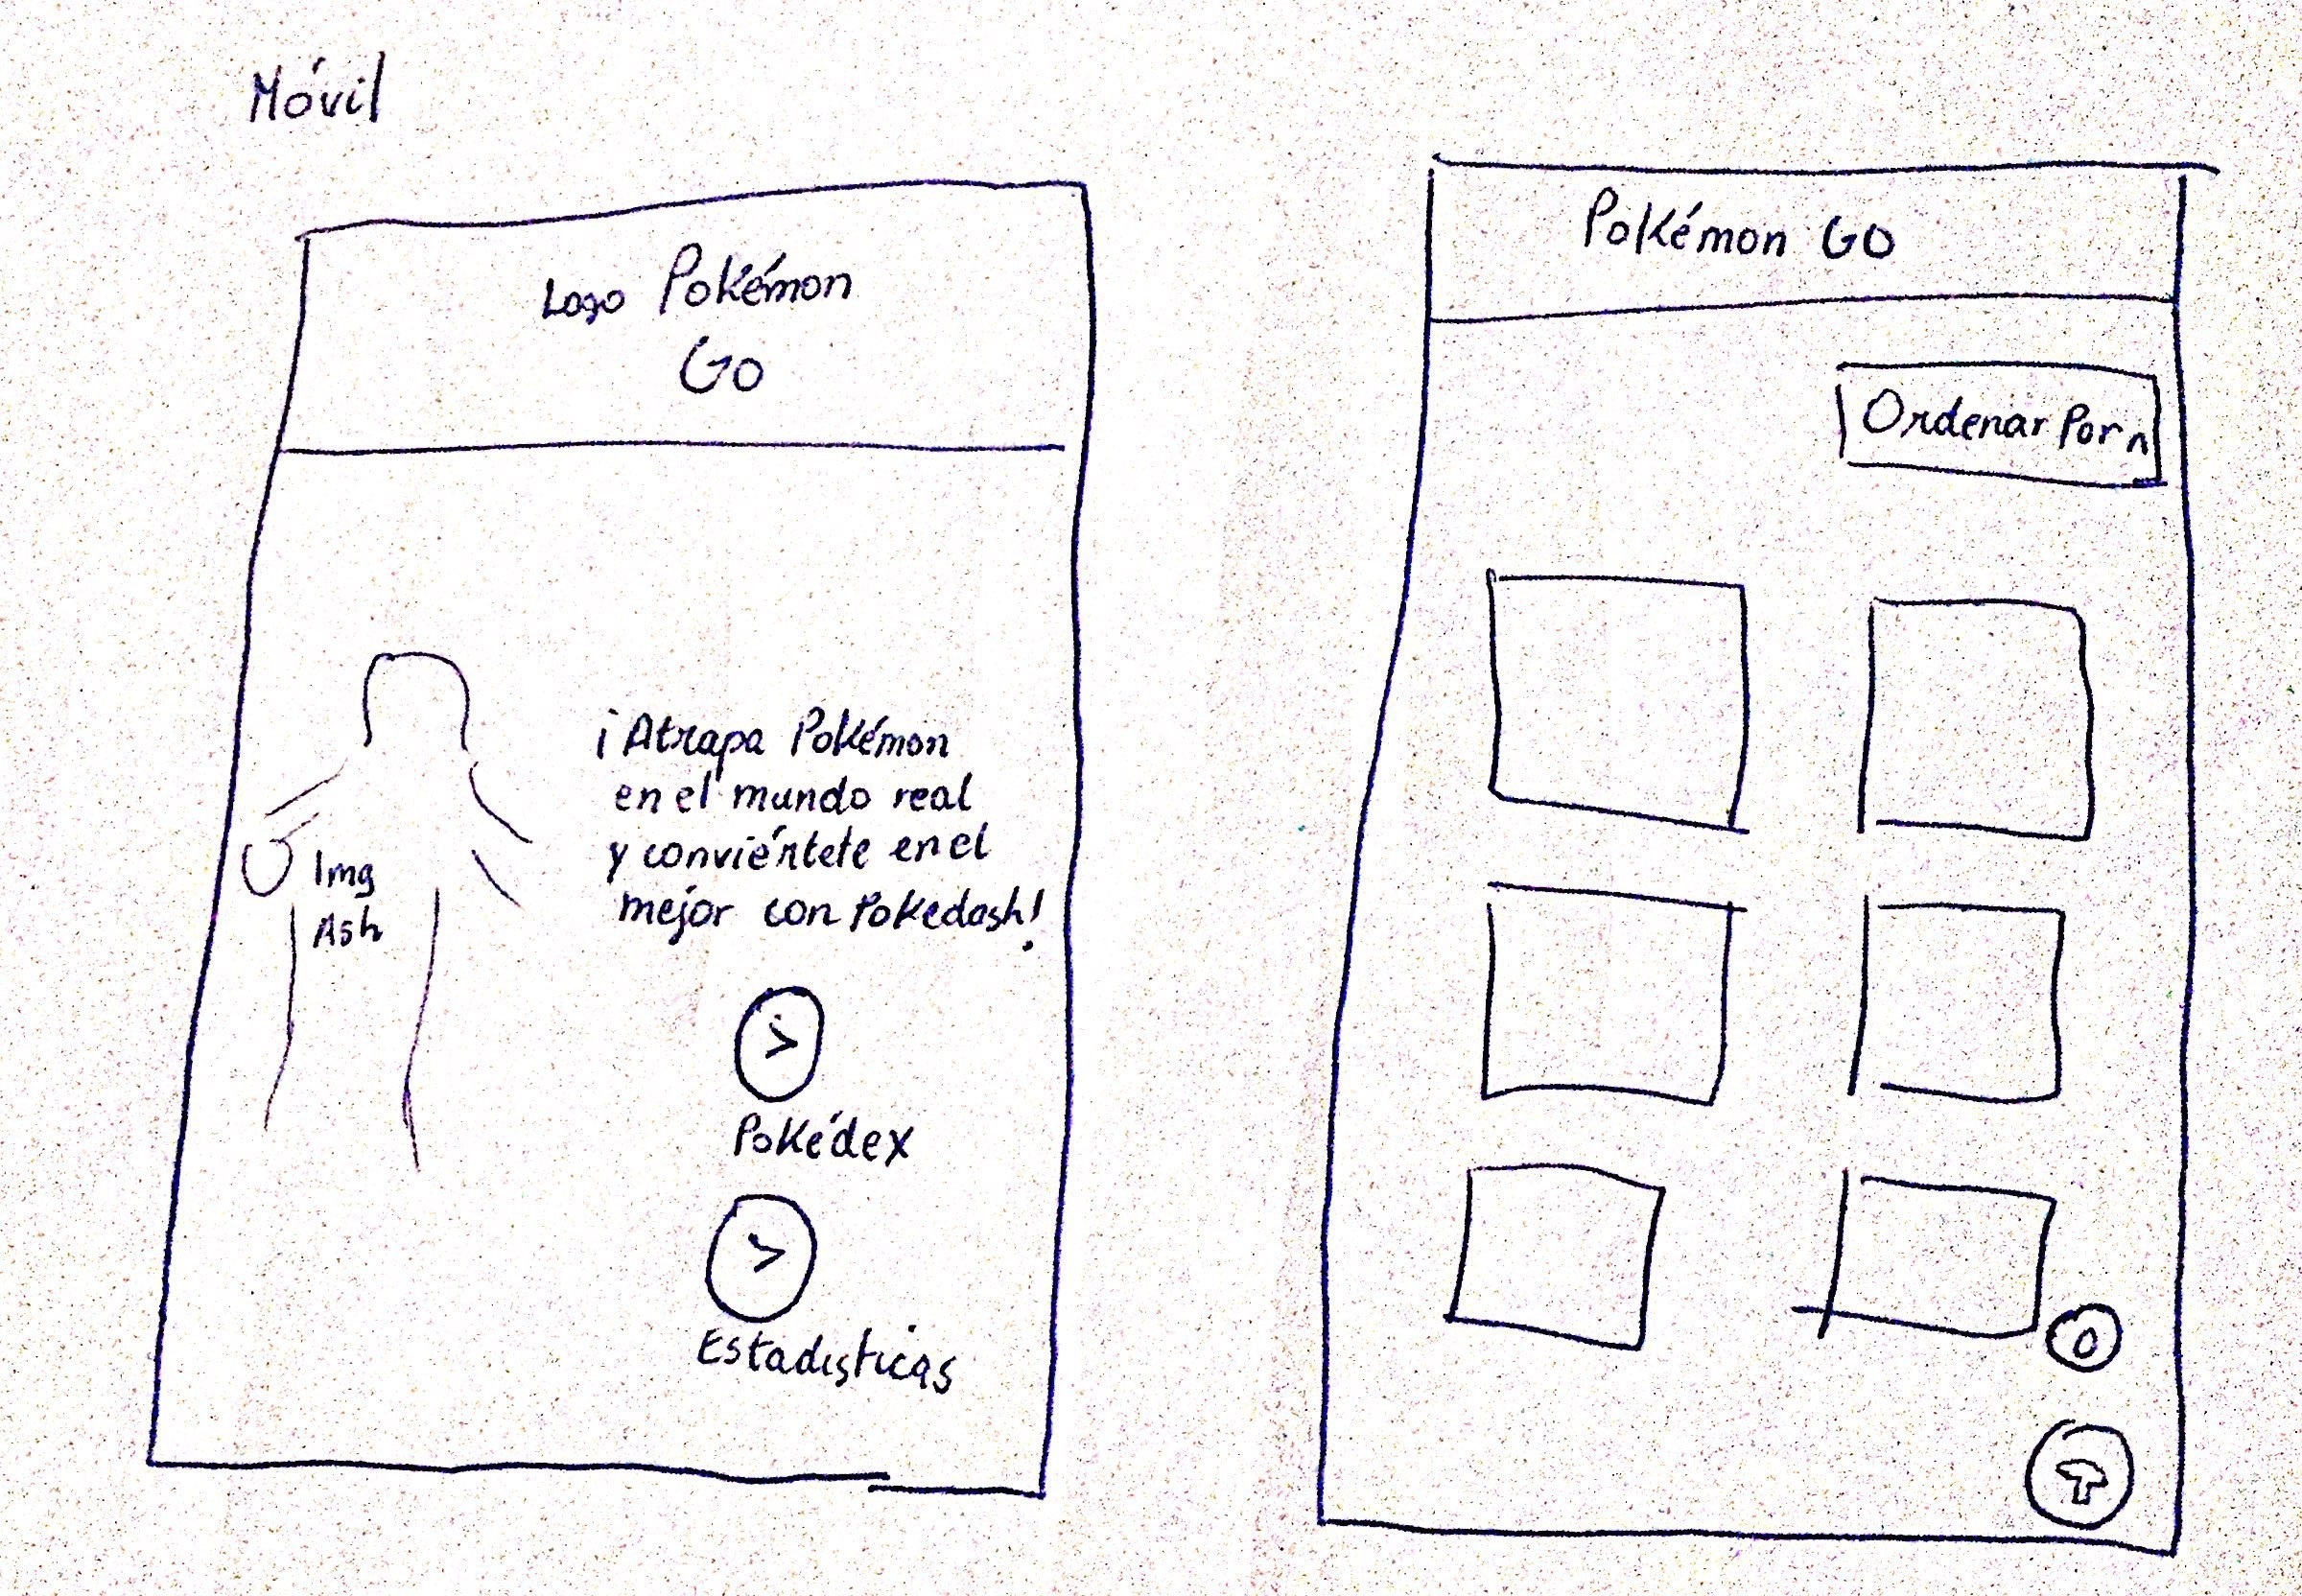 Móvil
Logo Pokémon
Go
Img
Ash
¡Atrapa Pokémon
en el mundo real
y conviértete en el
mejor con Pokedash!
>
Pokédex
>
Estadisticas
Pokémon GO
Ordenar Por